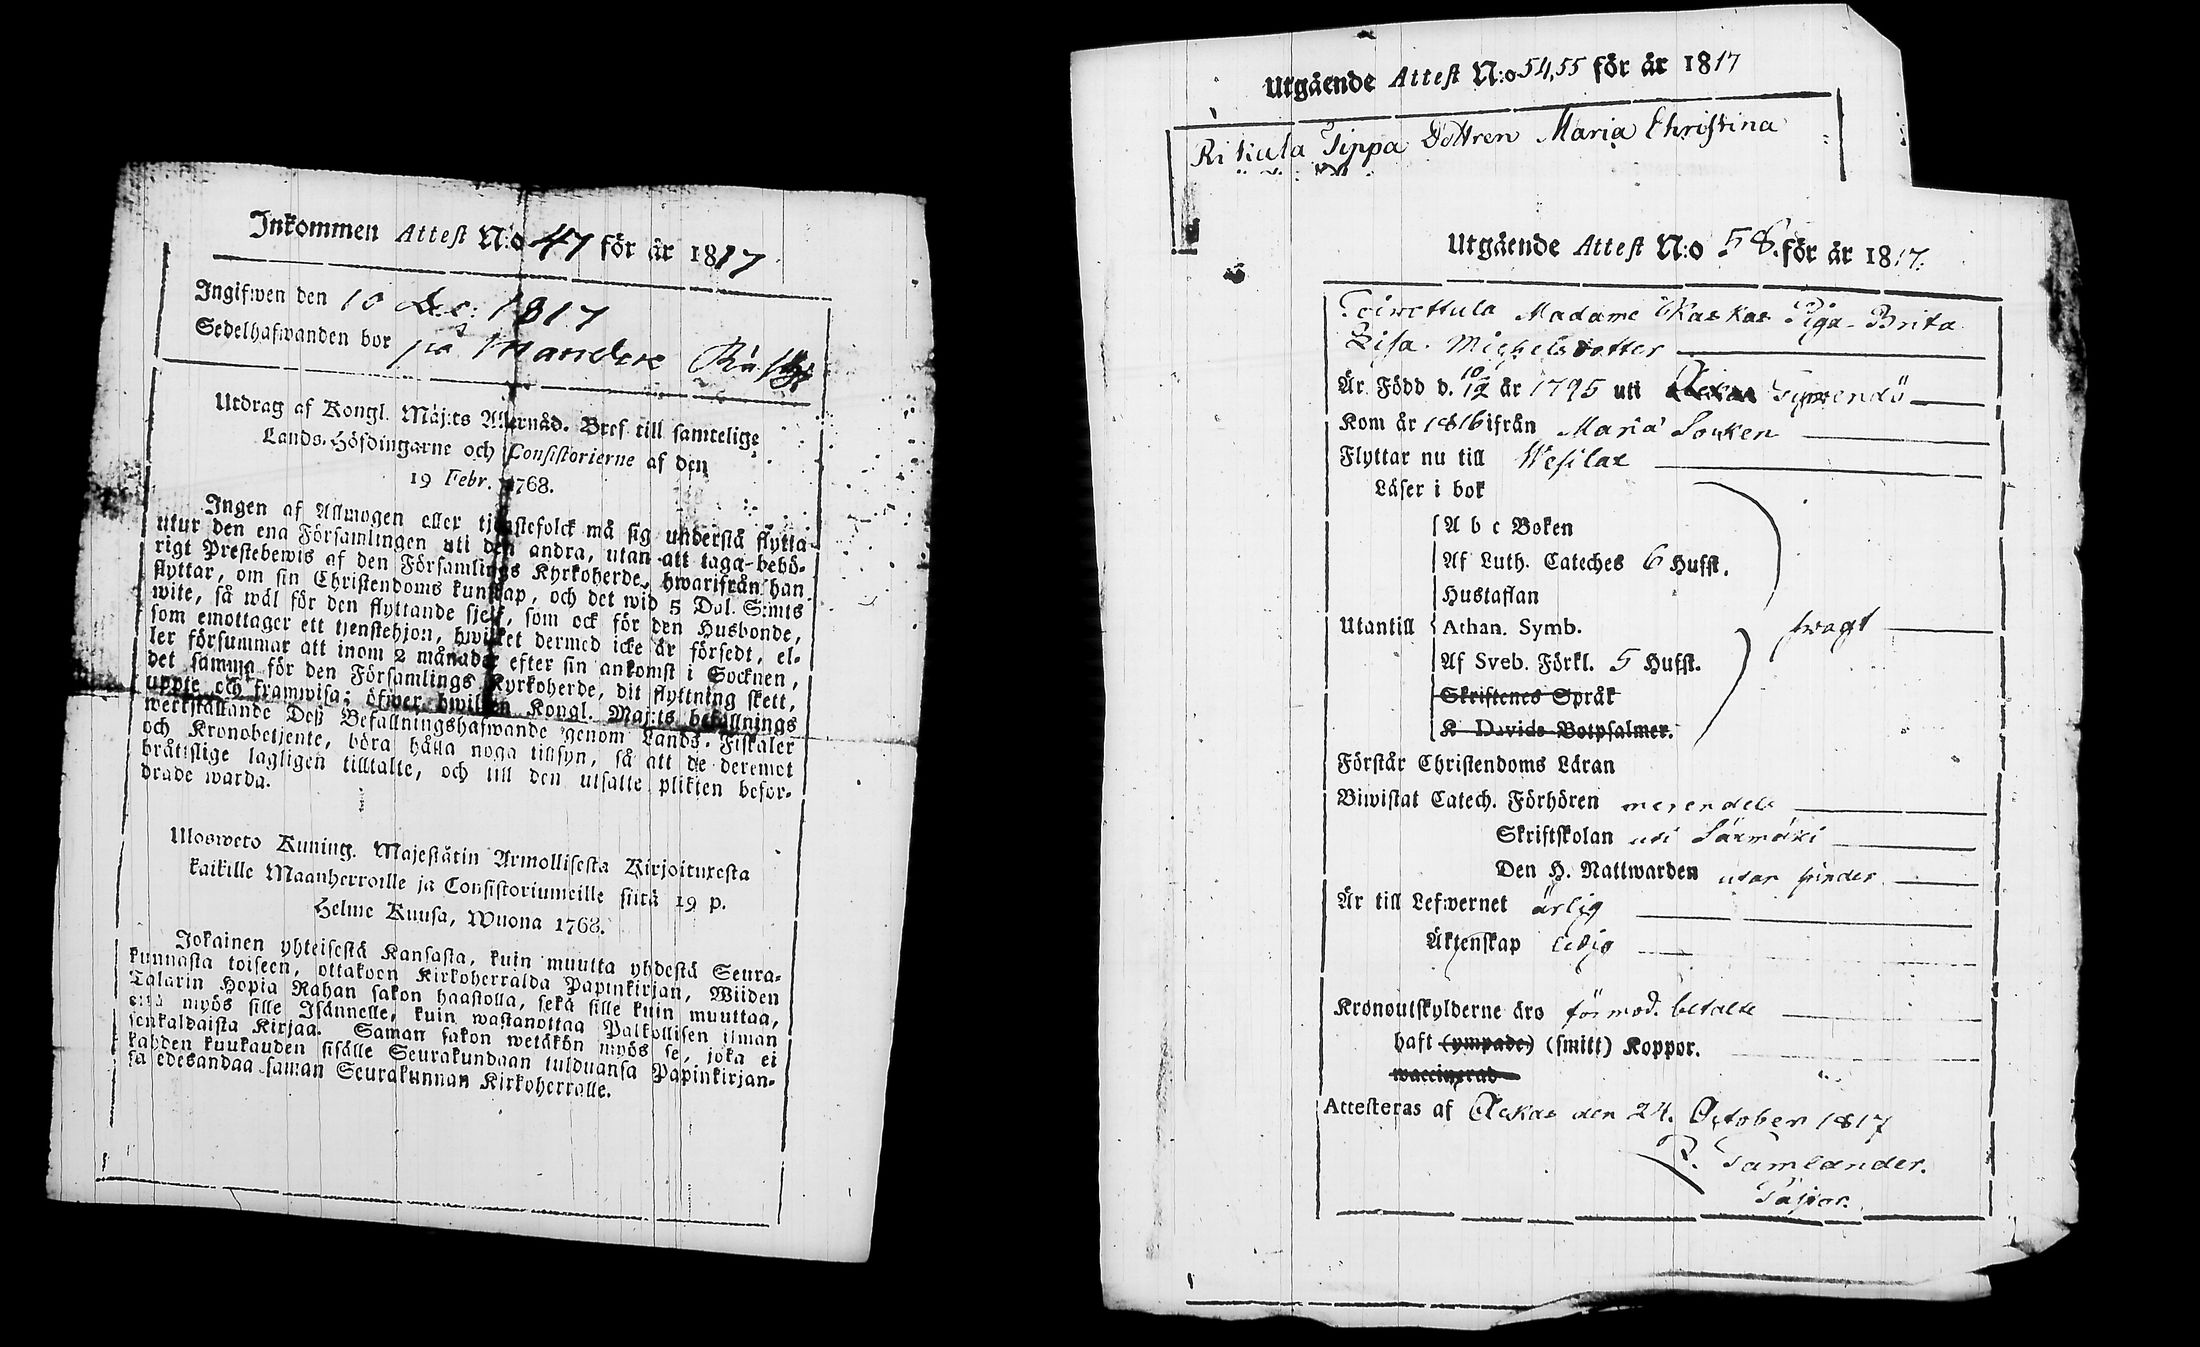 Inkommen Attest N:o 47 för år 1817
Ingifwen den 10 Dec: 1817
Sedelhafwanden bor på
Utdrag af Kongl. Maj:ts Allernåd. Bref till samtelige
Lands-Höfdingarne och Consistorierne af den
19 Febr. 1768.
Ingen af Allmogen eller tjenstefolck må sig understå flytta
utur den ena Församlingen uti den andra, utan att taga behö-
rigt Prestebewis af den Församlings Kyrkoherde, hwarifrån han
flyttar, om sin Christendoms kunskap, och det wid 5 Dal. S:mts
wite, så wäl för den flyttande sjelf, som ock för den Husbonde,
som emottager ett tjenstehjon, hwilket dermed icke är försedt, el-
ler försummar att inom 2 månader efter sin ankomst i Socknen,
det samma för den Församlings Kyrkoherde, dit flyttning skett,
uppte och framwisa; öfwer hwilken Kongl. Maj:ts befallnings
werkställande Deß Befallningshafwande genom Lands-Fiskaler
och Kronobetjente, böra hålla noga tillsyn, så att de deremot
bråtislige lagligen tilltalte, och till den utsatte plikten befor-
drade warda.
Ulosweto Kuning. Majestätin Armollisesta Kirjoituxesta
kaikille Maanherroille ja Consistoriumeille siitä 19 p.
Helme Kuusa, Wuona 1768.
Jokainen yhteisestä Kansasta, kuin muutta yhdestä Seura-
kunnasta toiseen, ottakoon Kirkoherralda Papinkirjan, Wiiden
Talarin Hopia Rahan sakon haastolla, sekä sille kuin muuttaa,
että myös sille Isännelle, kuin wastanottaa Palkollisen ilman
senkaldaista Kirjaa. Saman sakon wetäkön myös se, joka ei
kahden kuukauden sisälle Seurakundaan tulduansa Papinkirjan-
sa edesandaa saman Seurakunnan Kirkoherralle.
Utgående Attest N:o 54,55 för år 1817
Rikula Pippa Dottren Maria Christina
Utgående Attest N:o 58. för år 1817.
Madame Piga Brita
Lisa Michelsdotter
Är Född d. 10/12 år 1795 uti
Kom år 1816 ifrån Maria Socken
Flyttar nu till Wesilax
Läser i bok
A b c Boken
Af Luth. Cateches 6 Hufst.
Hustaflan
Utantill Athan. Symb. swagt
Af Sveb. Förkl. 5 Hufst.
Skriftenes Språk
K Davids Botpsalmer.
Förstår Christendoms Läran
Biwistat Catech. Förhören merendels
Skriftskolan uti Säxmäki
Den H. Nattwarden utan hinder
Är till Lefwernet ärlig
Äktenskap ledig
Kronoutskylderne äro förmod. betalte
haft (ympade) (smitt) Koppor.
waccinerad
Attesteras af Ackas den 24. October 1817
Tamlander.
Pastor.